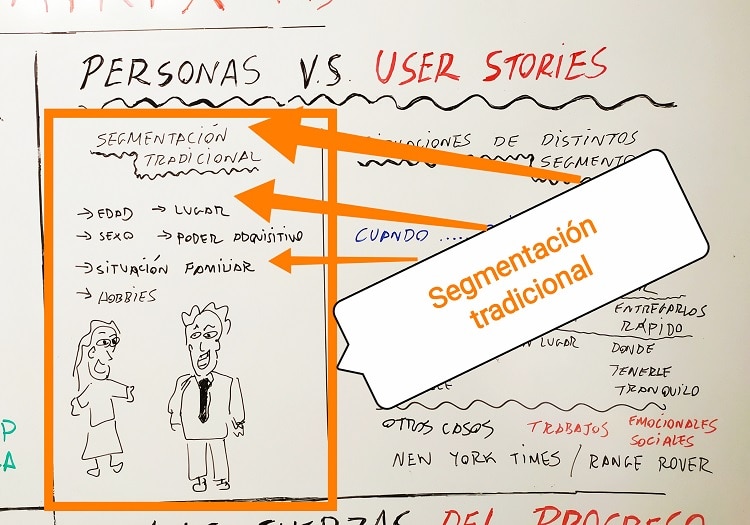 PERSONAS V.S. USER STORIES
SEGMENTACIÓN
TRADICIONAL
→ EDAD → LUGAR
→ SEXO → PODER ADQUISITIVO
→ SITUACIÓN FAMILIAR
→ HOBBIES
DE DISTINTOS
CUANDO ....
Segmentación
tradicional
ENTREGARLOS
RÁPIDO
LUGAR DONDE
TENERLE
TRANQUILO
OTROS CASOS TRABAJOS EMOCIONALES
SOCIALES
NEW YORK TIMES / RANGE ROVER
DEL PROGRESO